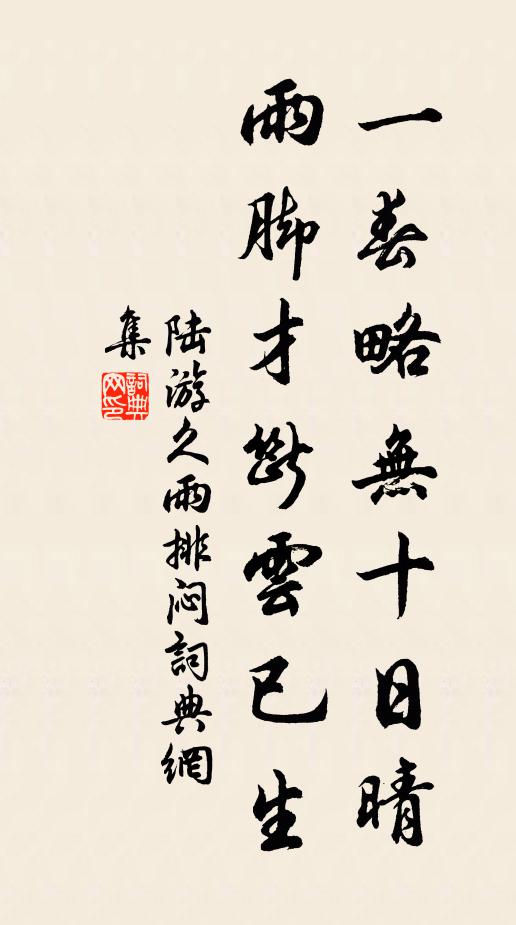 一春略無十日晴
雨脚才斷雲已生
陆游久雨排闷詞典網
集
詞典网印